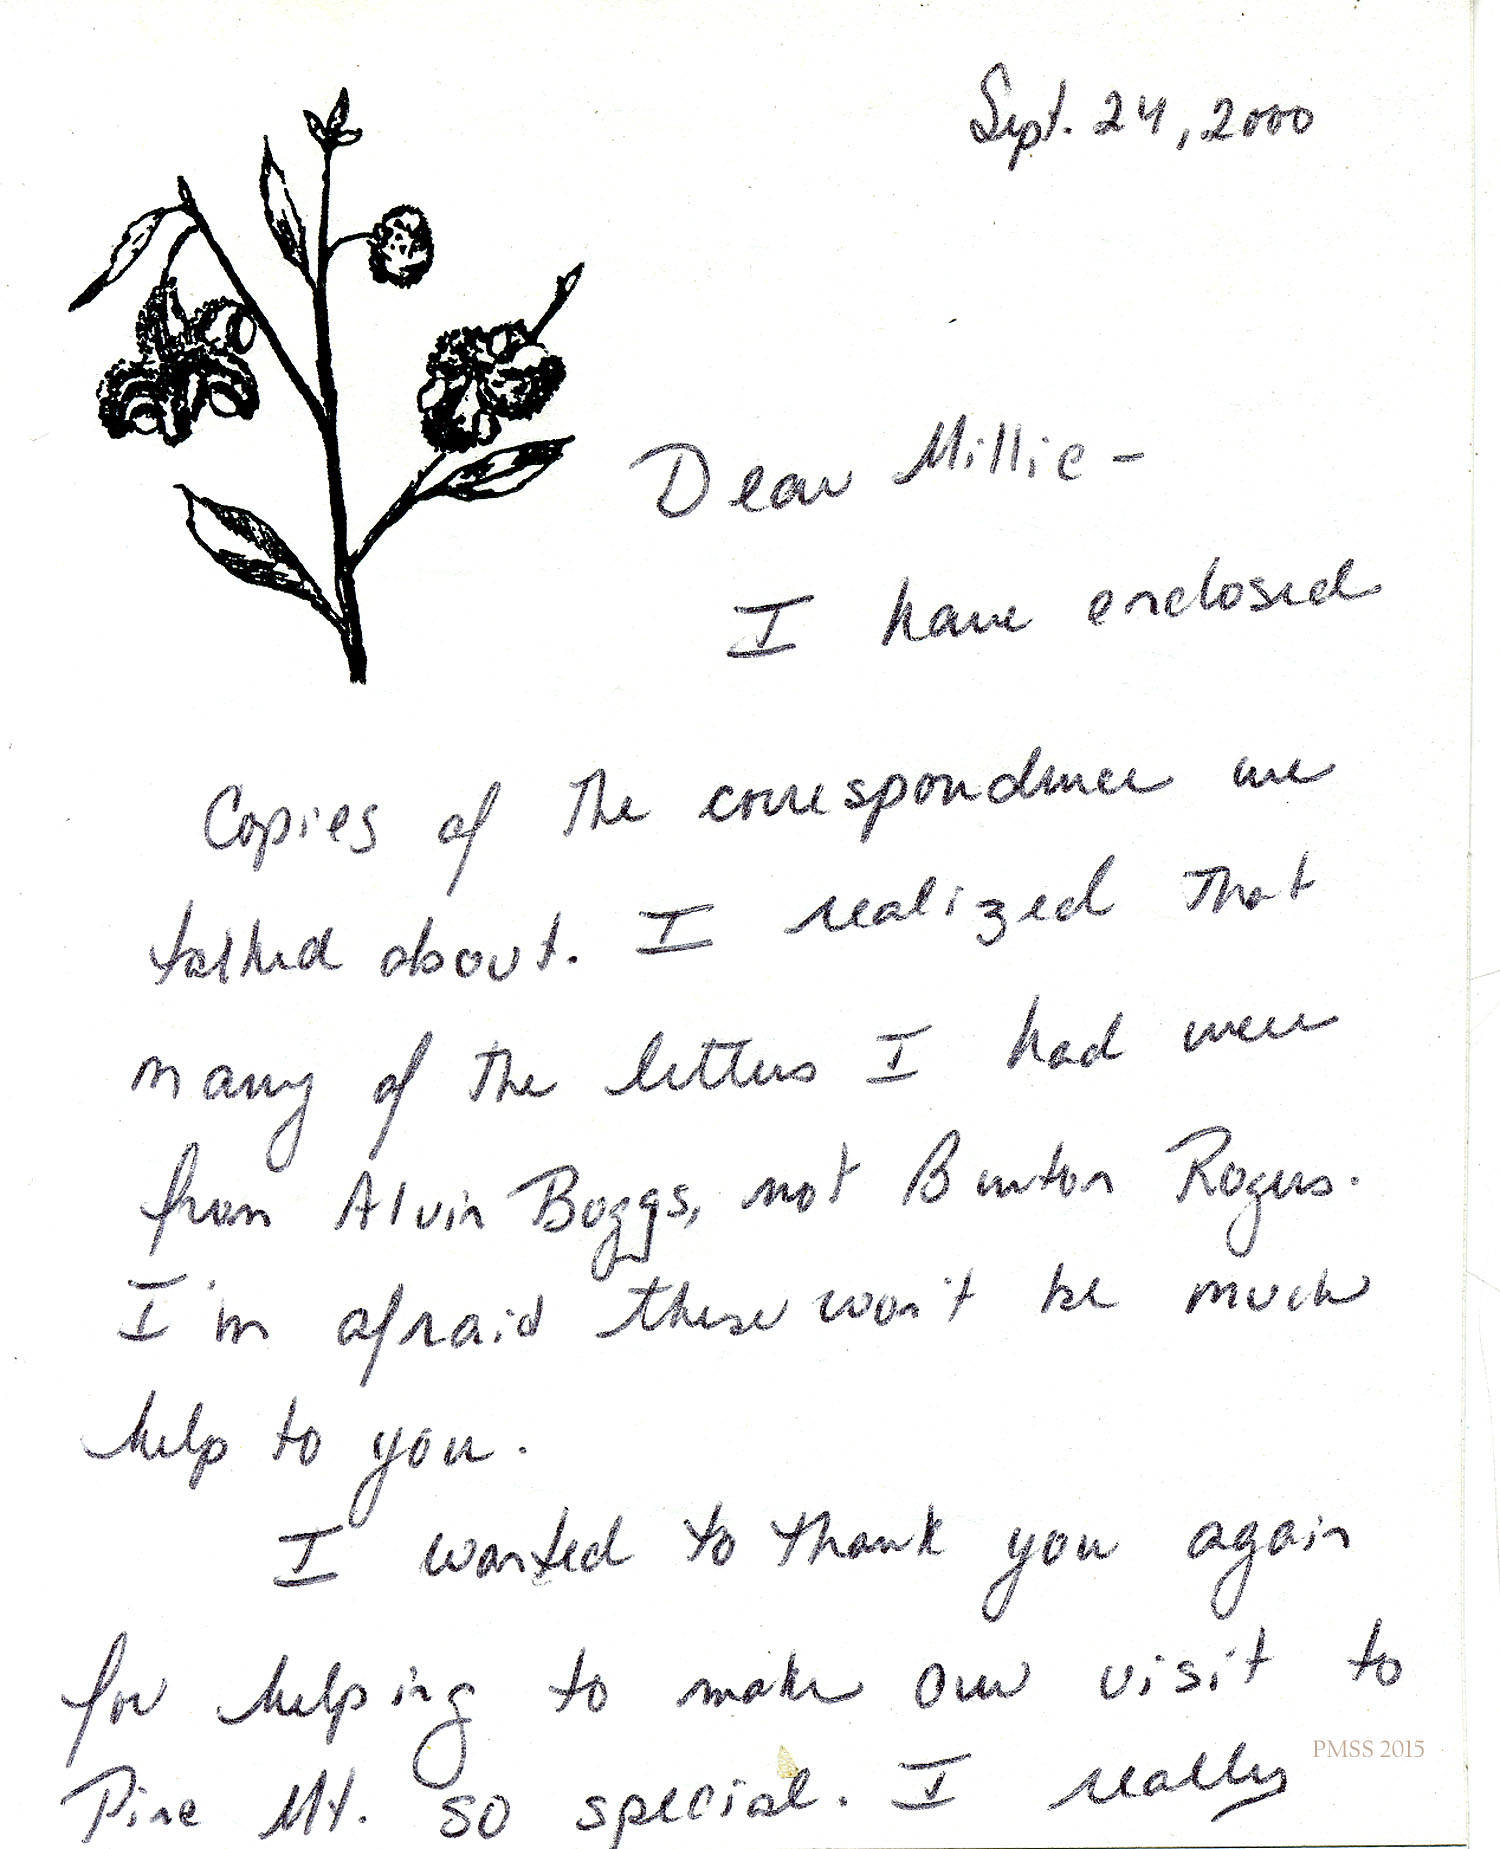 Sept. 24, 2000
Dear Millie -
I have enclosed
Copies of the correspondence we
talked about. I realized that
many of the letters I had were
from Alvin Boggs, not Burton Rogers.
I'm afraid these won't be much
help to you.
I wanted to thank you again
for helping to make our visit to
PMSS 2015
Pine Mt. so special. I really